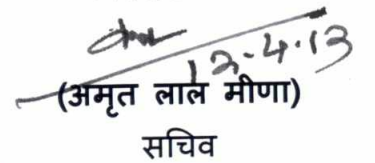 12-4-13
(अमृत लाल मीणा)
सचिव